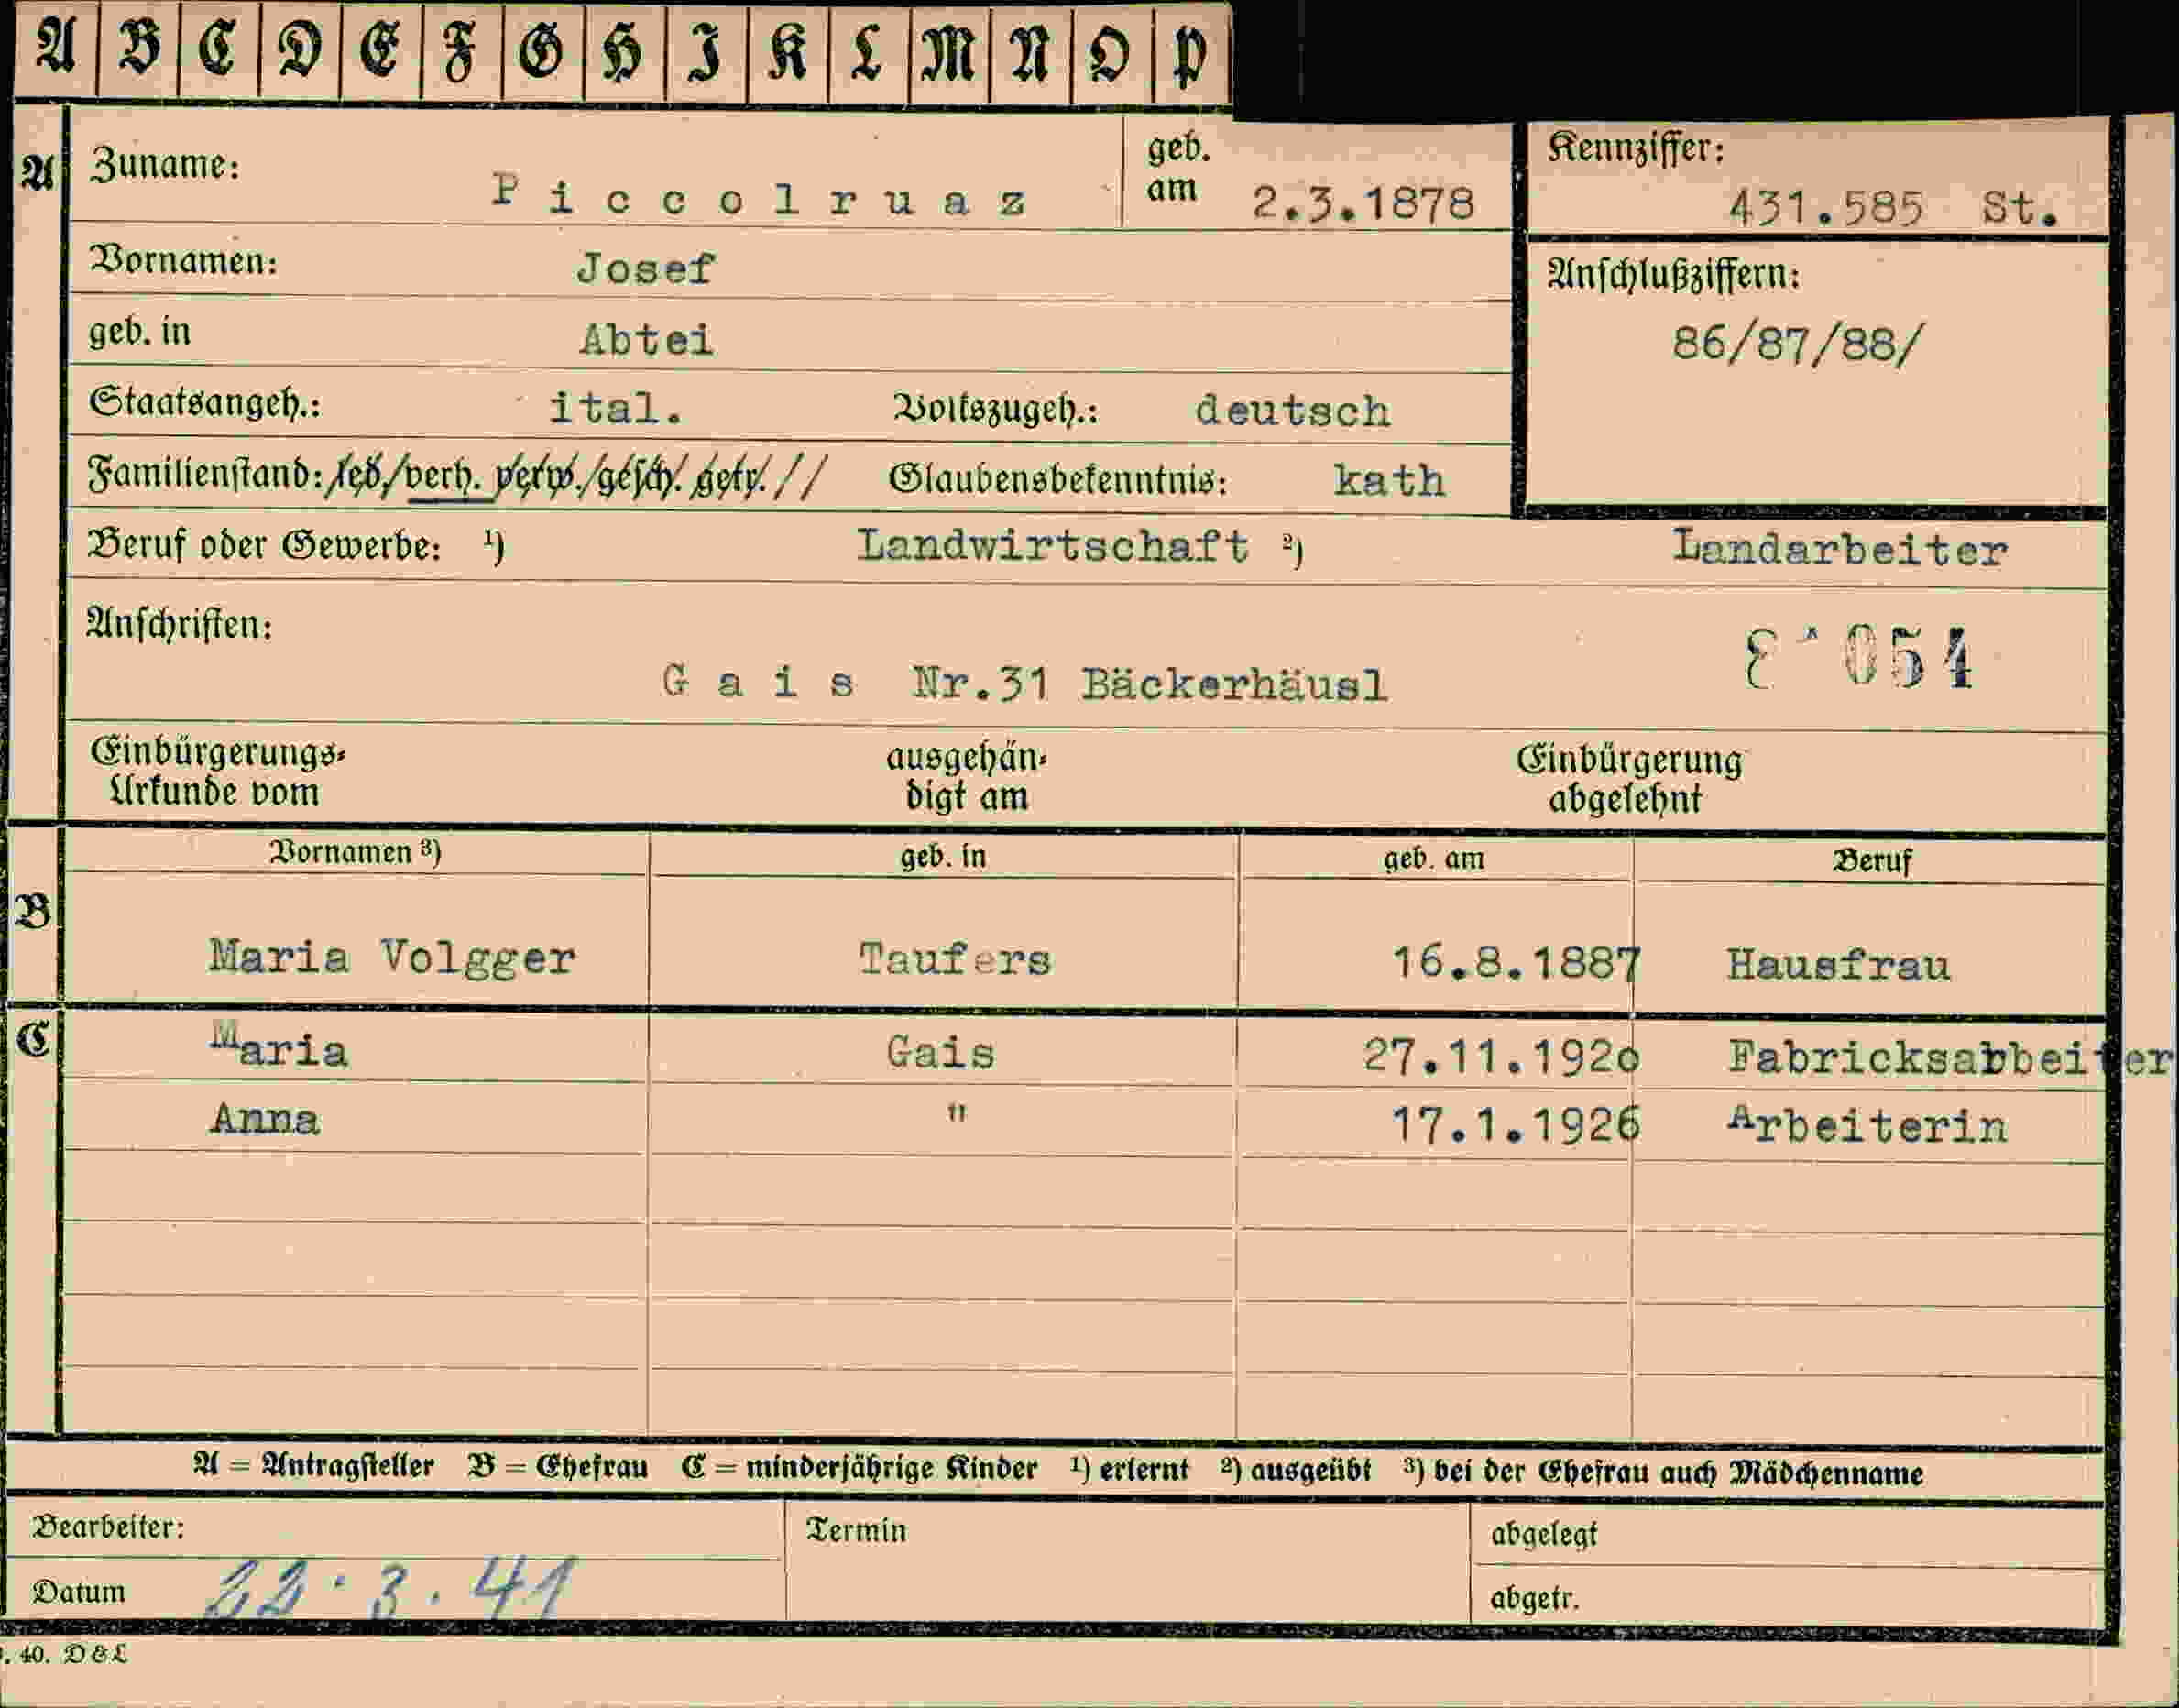 A B C D E F G H I K L M N O P
A Zuname: Piccolruaz geb. am 2.3.1878 Kennziffer: 431.585 St.
Vornamen: Josef Anschlußziffern:
geb. in Abtei 86/87/88/
Staatsangeh.: ital. Volkszugeh.: deutsch
Familienstand: led./verh. verw./gesch. getr. // Glaubensbekenntnis: kath
Beruf oder Gewerbe: ¹) Landwirtschaft ²) Landarbeiter
Anschriften:
Gais Nr.31 Bäckerhäusl 054
Einbürgerungs- ausgehän- Einbürgerung
Urkunde vom digt am abgelehnt
Vornamen ³) geb. in geb. am Beruf
B Maria Volgger Taufers 16.8.1887 Hausfrau
C Maria Gais 27.11.1920 Fabricksabbeiter
Anna " 17.1.1926 Arbeiterin
A = Antragsteller B = Ehefrau C = minderjährige Kinder ¹) erlernt ²) ausgeübt ³) bei der Ehefrau auch Mädchenname
Bearbeiter: Termin abgelegt
Datum 22.3.41 abgetr.
. 40. D & L